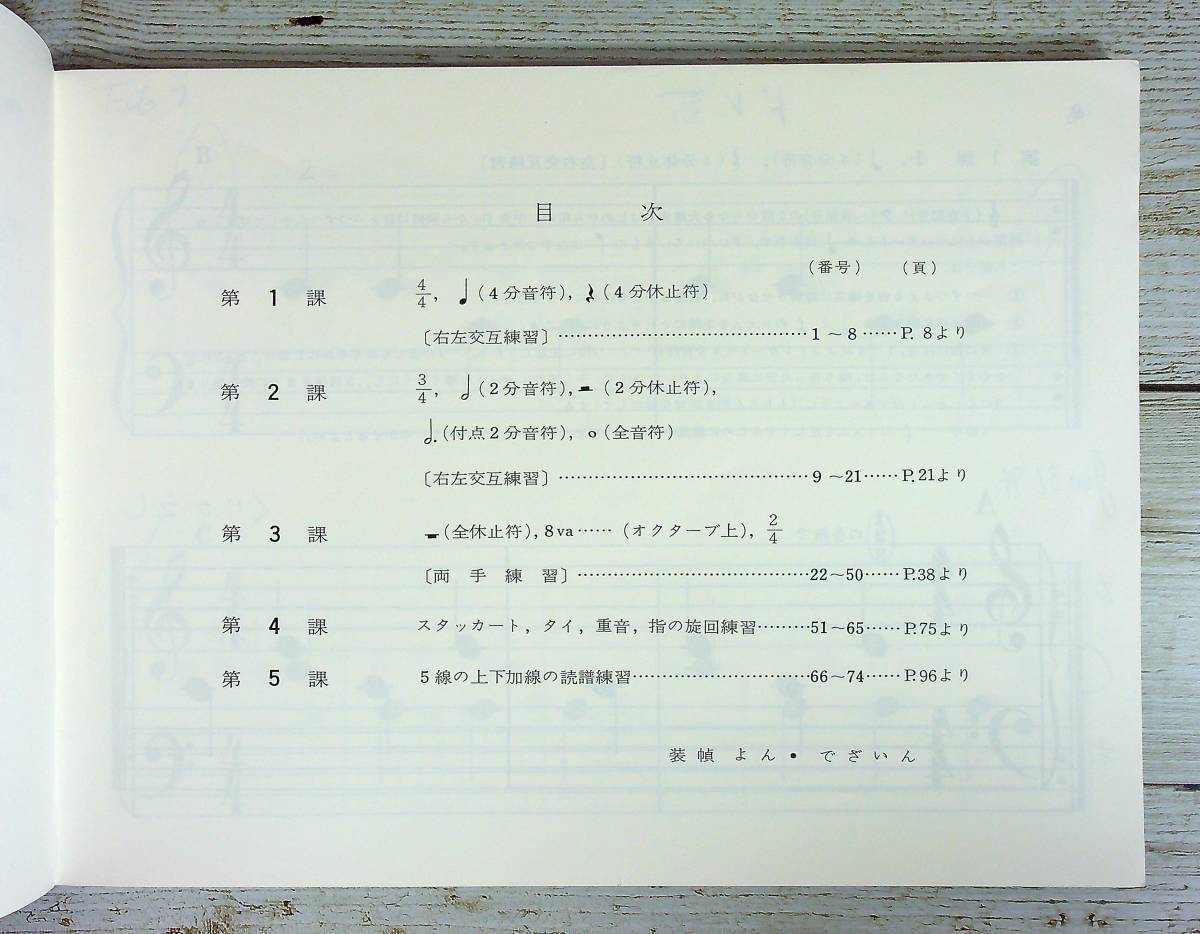 目次
（番号）（頁）
第1課 4/4，♩（4分音符），𝄽（4分休止符）
〔右左交互練習〕……………………………………1～8……P. 8より
第2課 3/4，𝅗𝅥（2分音符），𝄼（2分休止符），
𝅗𝅥.（付点2分音符），𝅝（全音符）
〔右左交互練習〕……………………………………9～21……P.21より
第3課 𝄻（全休止符），8va……（オクターブ上），2/4
〔両手練習〕…………………………………22～50……P.38より
第4課 スタッカート，タイ，重音，指の旋回練習………51～65……P.75より
第5課 5線の上下加線の読譜練習…………………………66～74……P.96より
装幀 よん・でざいん